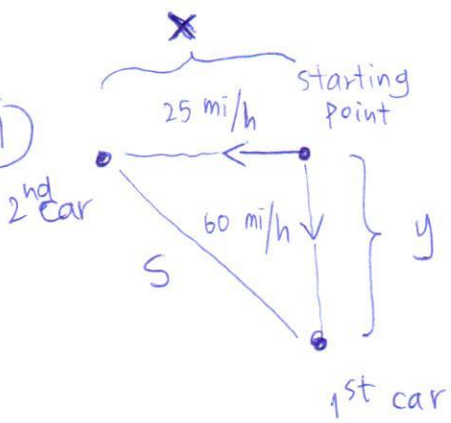 x
starting
point
25 mi/h
1)
2nd car
60 mi/h
y
S
1st car